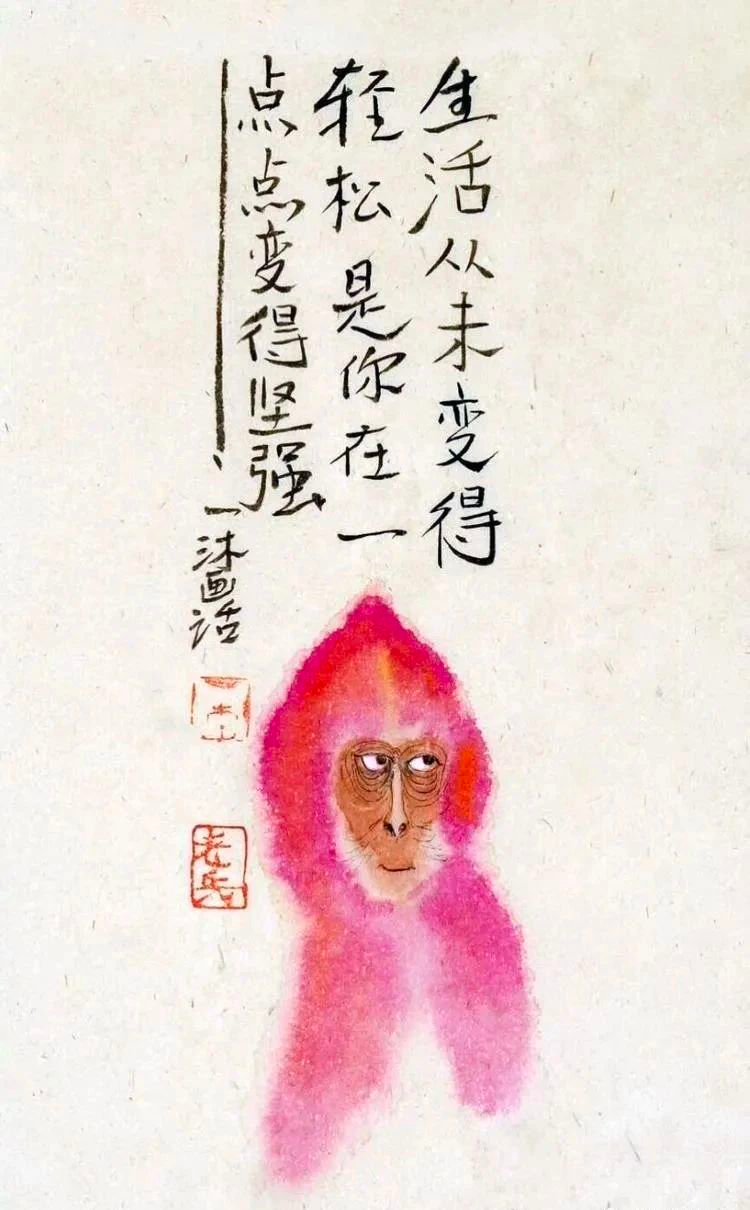 生活从未变得
轻松是你在一
点点变得坚强
一沐画话
一木
老兵